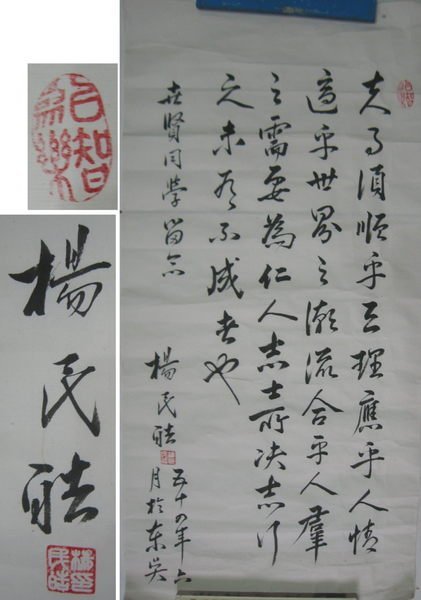 夫事須順乎天理應乎人情
適乎世界之潮流合乎人羣
之需要為仁人志士所決志行
之未有不成者也
世賢同學留念
楊民
五十四年六
月於東吳
楊民